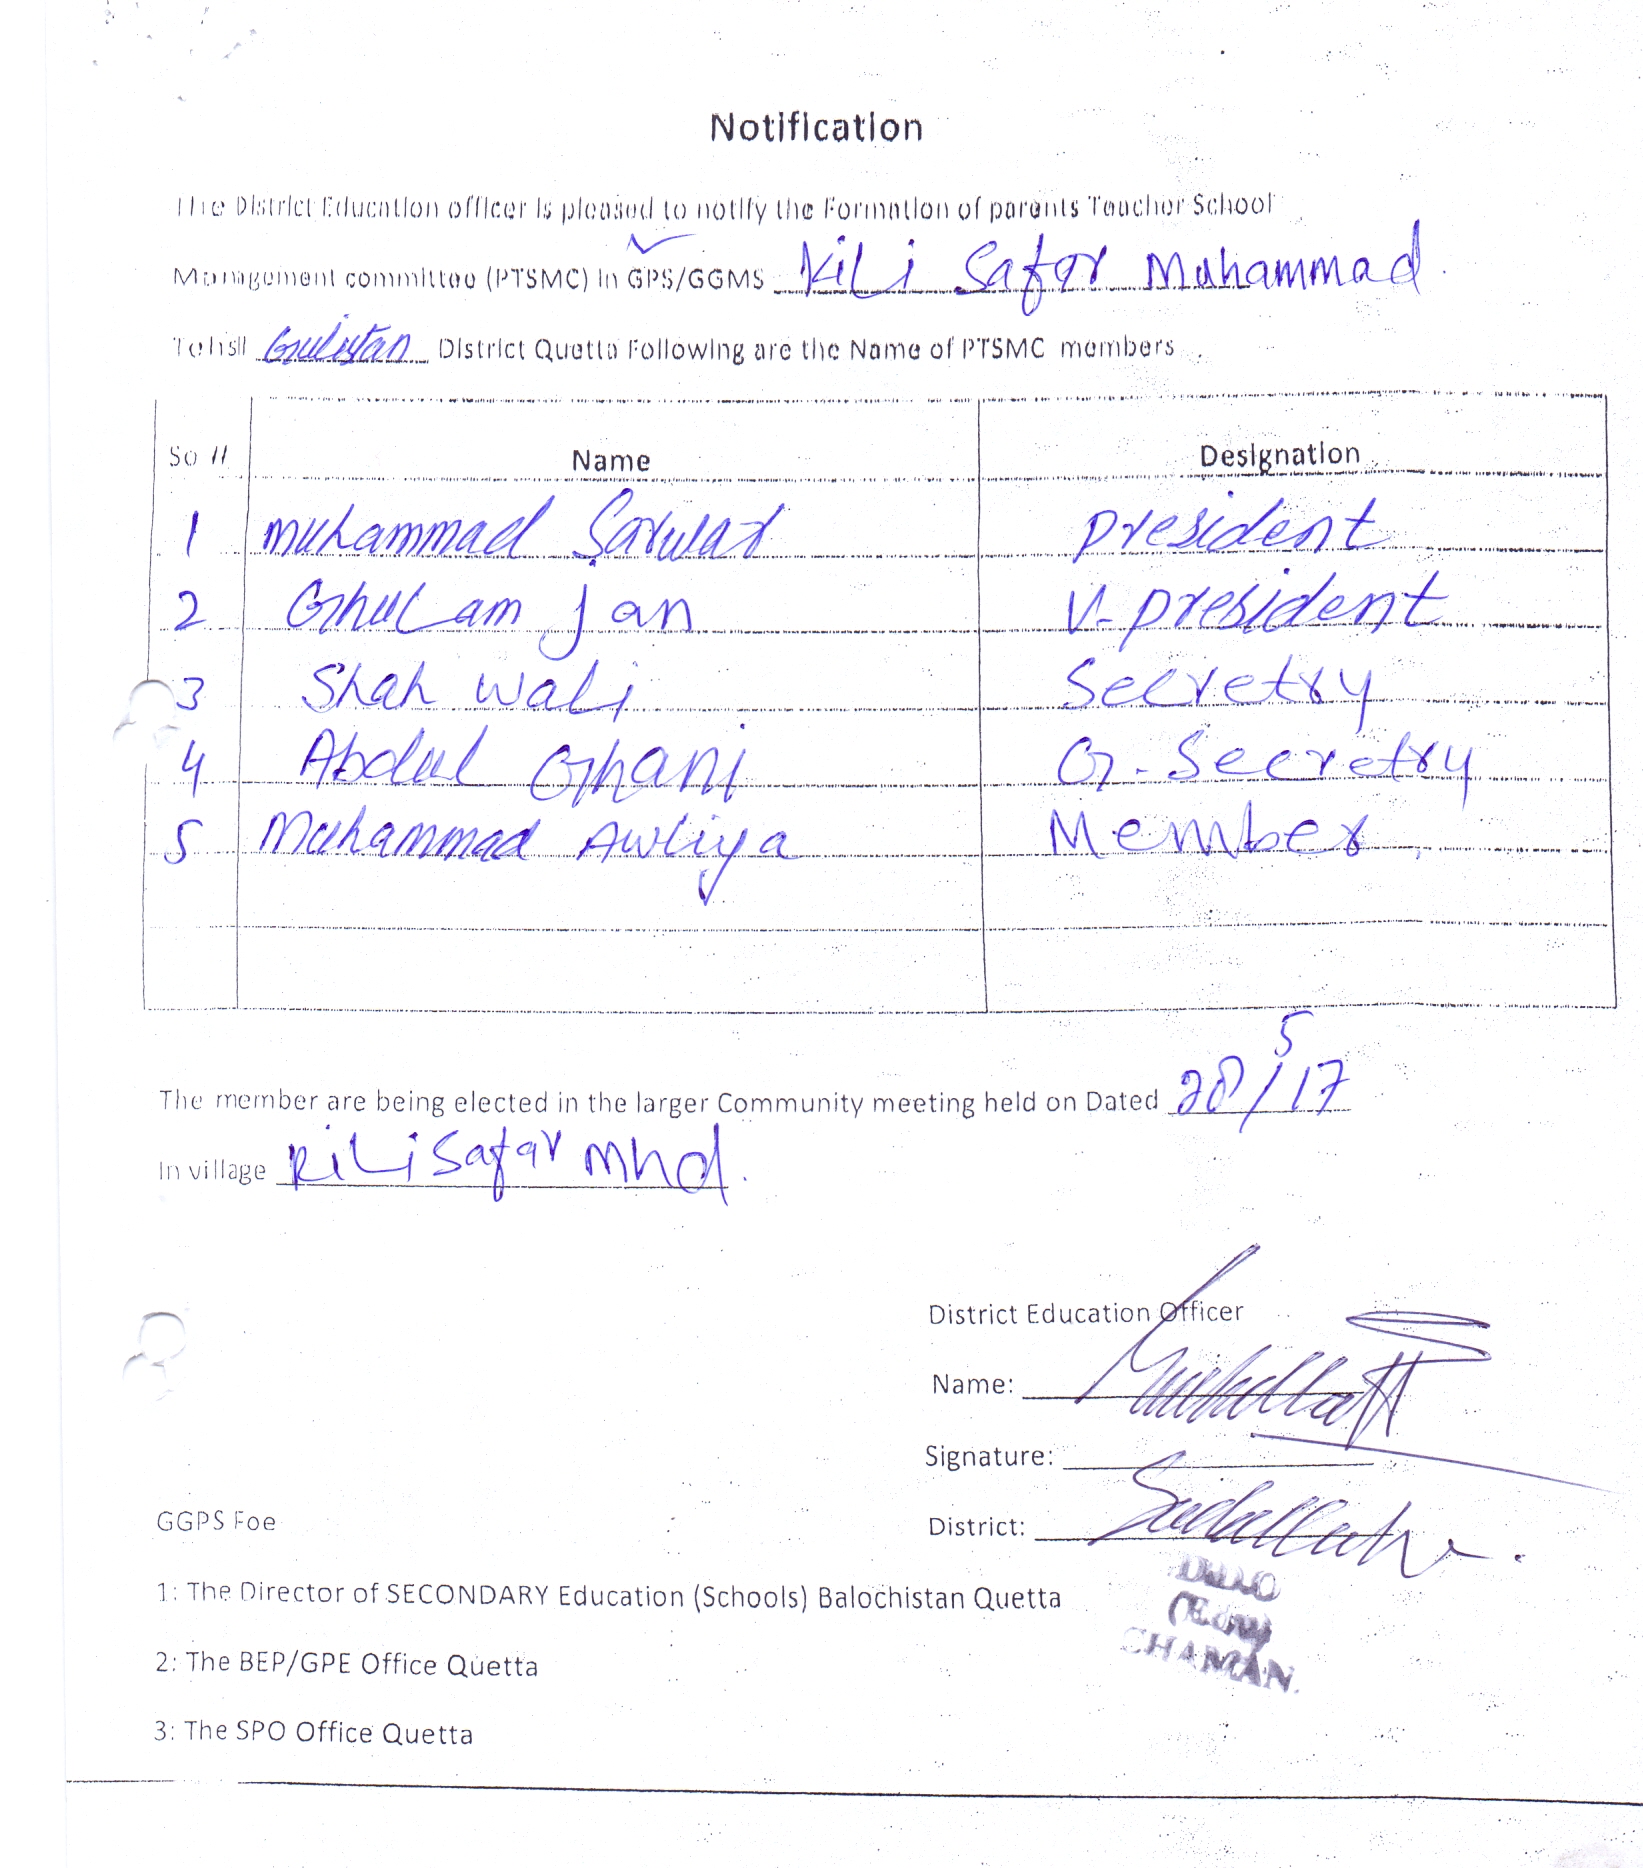 Notification
The District Education officer is pleased to notify the Formation of parents Teacher School
Management committee (PTSMC) in GPS/GGMS Kili Safar Muhammad
Tehsil Gulistan District Quetta Following are the Name of PTSMC members
So # Name Designation
1 Muhammad Sarwar president
2 Ghulam Jan V-president
3 Shah Wali Secretry
4 Abdul Ghani G-Secretry
5 Muhammad Awliya Member
The member are being elected in the larger Community meeting held on Dated 28/5/17
In village Kili Safar Mhd.
District Education Officer
Name:
Signature:
GGPS Foe
District: Sadullah
(Edu)
CHAMAN.
1: The Director of SECONDARY Education (Schools) Balochistan Quetta
2: The BEP/GPE Office Quetta
3: The SPO Office Quetta